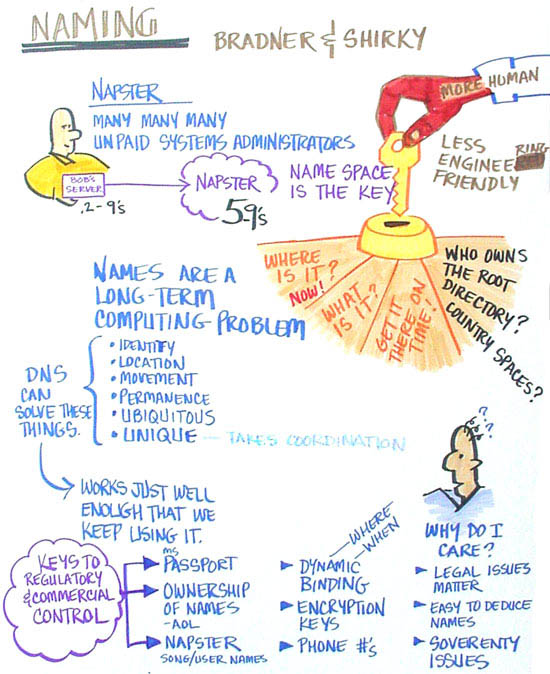 NAMING
BRADNER & SHIRKY
MORE HUMAN
LESS
ENGINEERING
FRIENDLY
NAPSTER
MANY MANY MANY
UNPAID SYSTEMS ADMINISTRATORS
BOB'S
SERVER
.2-9's
NAPSTER
5-9's
NAME SPACE
IS THE KEY
WHERE
IS IT?
NOW!
WHAT
IS IT?
GET IT
THERE ON
TIME!
WHO OWNS
THE ROOT
DIRECTORY?
COUNTRY SPACES?
NAMES ARE A
LONG-TERM
COMPUTING-PROBLEM
DNS
CAN
SOLVE THESE
THINGS.
• IDENTIFY
• LOCATION
• MOVEMENT
• PERMANENCE
• UBIQUITOUS
• UNIQUE — TAKES COORDINATION
WORKS JUST WELL
ENOUGH THAT WE
KEEP USING IT.
KEYS TO
REGULATORY
& COMMERCIAL
CONTROL
MS
PASSPORT
OWNERSHIP
OF NAMES
-AOL
NAPSTER
SONG/USER NAMES
WHERE
WHEN
DYNAMIC
BINDING
ENCRYPTION
KEYS
PHONE #'s
? ? ?
WHY DO I
CARE?
LEGAL ISSUES
MATTER
EASY TO DEDUCE
NAMES
SOVERENTY
ISSUES